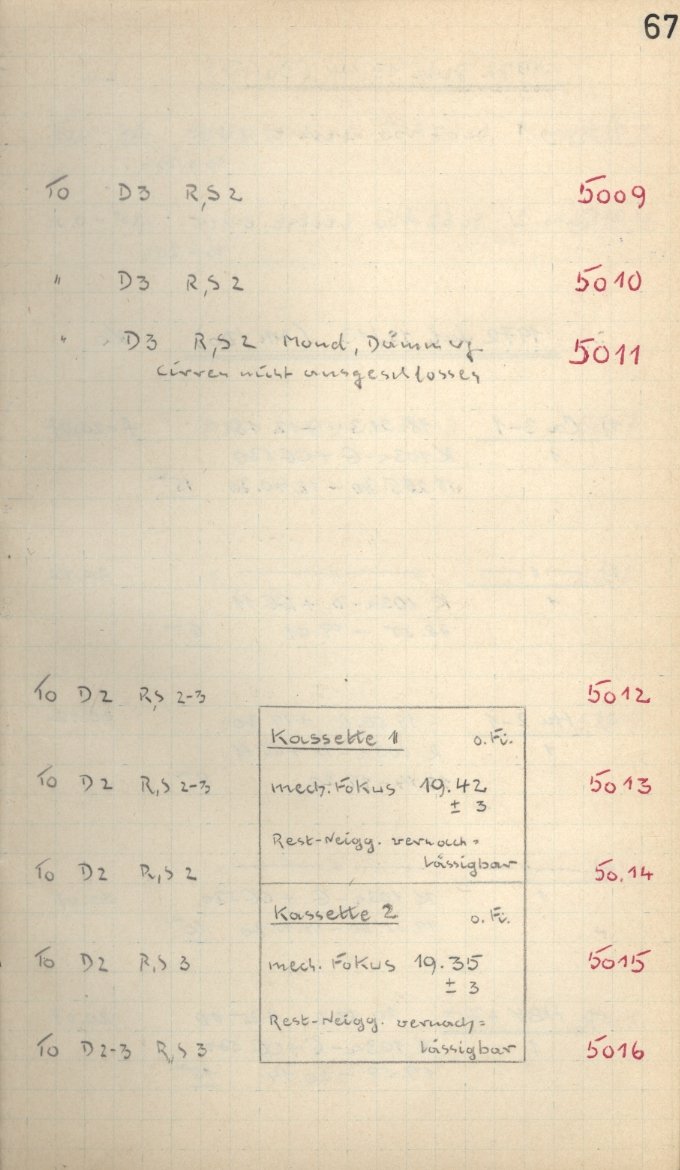 67
To D3 R,S 2 5009
" D3 R,S 2 5010
" D3 R,S 2 Mond, Dämmerg 5011
Cirren nicht ausgeschlossen
To D2 R,S 2-3 5012
Kassette 1 o.Fi.
To D2 R,S 2-3 5013
mech. Fokus 19.42
± 3
Rest-Neigg. vernach=
lässigbar
To D2 R,S 2 50.14
Kassette 2 o.Fi.
To D2 R,S 3 5015
mech. Fokus 19.35
± 3
Rest-Neigg. vernach=
lässigbar
To D2-3 R,S 3 5016